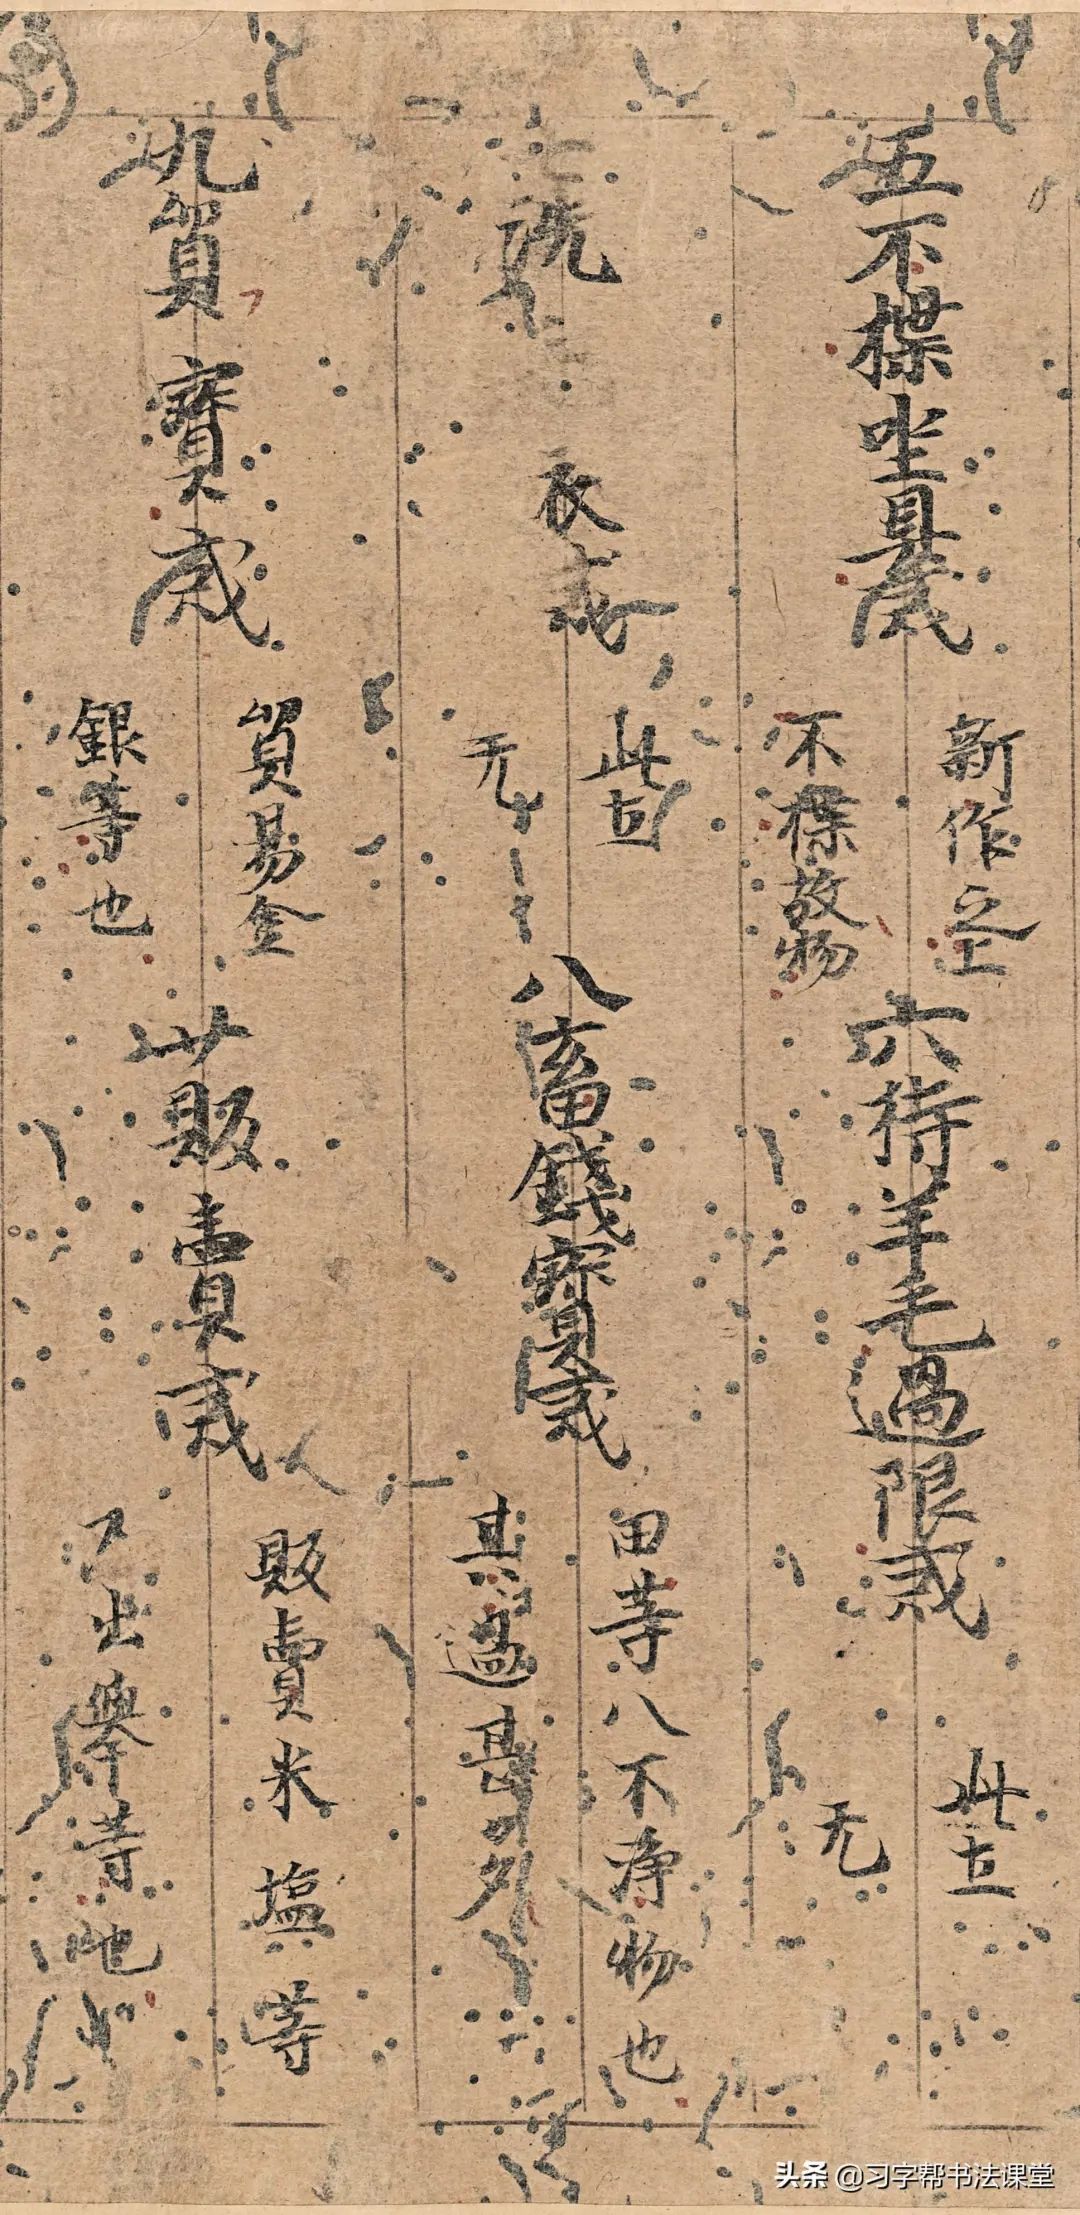 五不揲坐具戒
新作之
不揲故物
六持羊毛過限戒
此土
无
浣
衣戒
此土
无
八畜錢寶戒
田等八不淨物也
其過甚多
九貿寶戒
貿易金
銀等也
十販賣戒
販賣米塩等
出舉等也
头条 @习字帮书法课堂